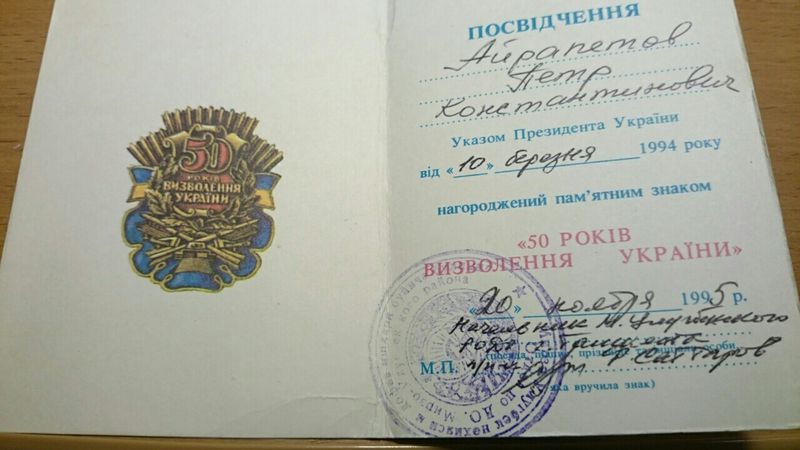 50
РОКІВ
ВИЗВОЛЕННЯ
УКРАЇНИ
ПОСВІДЧЕННЯ
Айрапетов
Петр
Константинович
Указом Президента України
від «10» березня 1994 року
нагороджений пам'ятним знаком
«50 РОКІВ
ВИЗВОЛЕННЯ УКРАЇНИ»
«20» ноября 1995 р.
Начальник М. Улугбекского
(посада, підпис, прізвище особи,
М.П.
яка вручила знак)